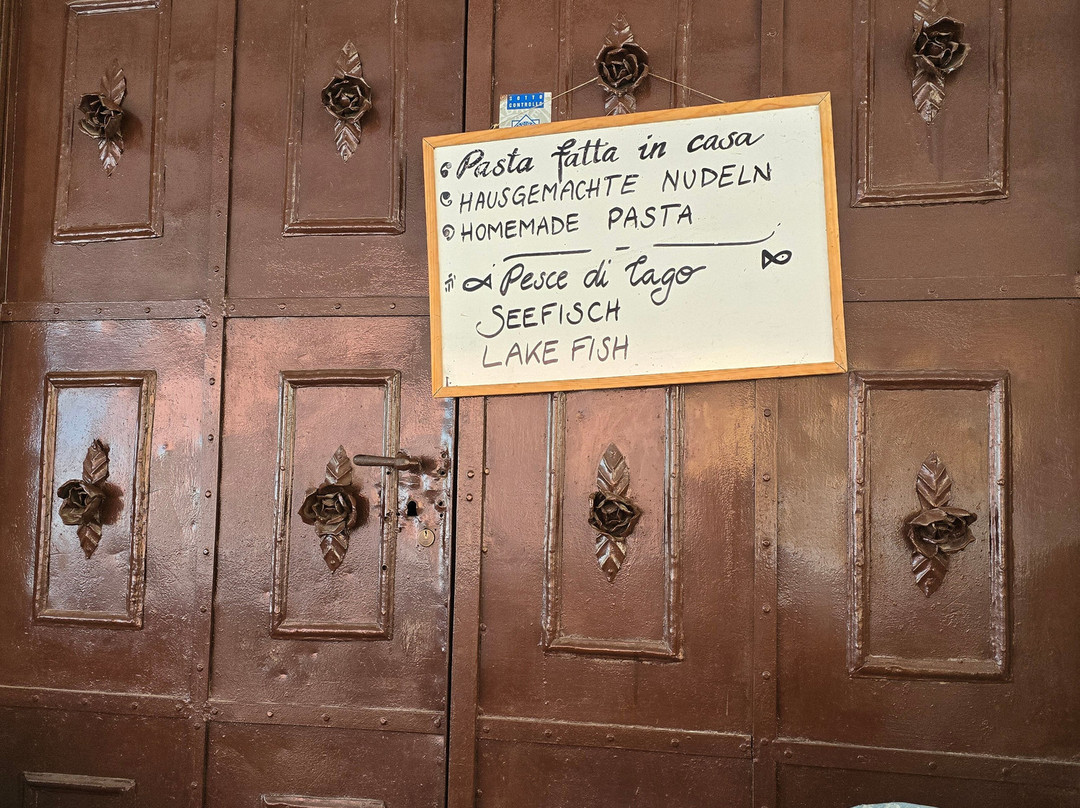 SOTTO
CONTROLLO
Pasta fatta in casa
HAUSGEMACHTE NUDELN
HOMEMADE PASTA
Pesce di lago
SEEFISCH
LAKE FISH